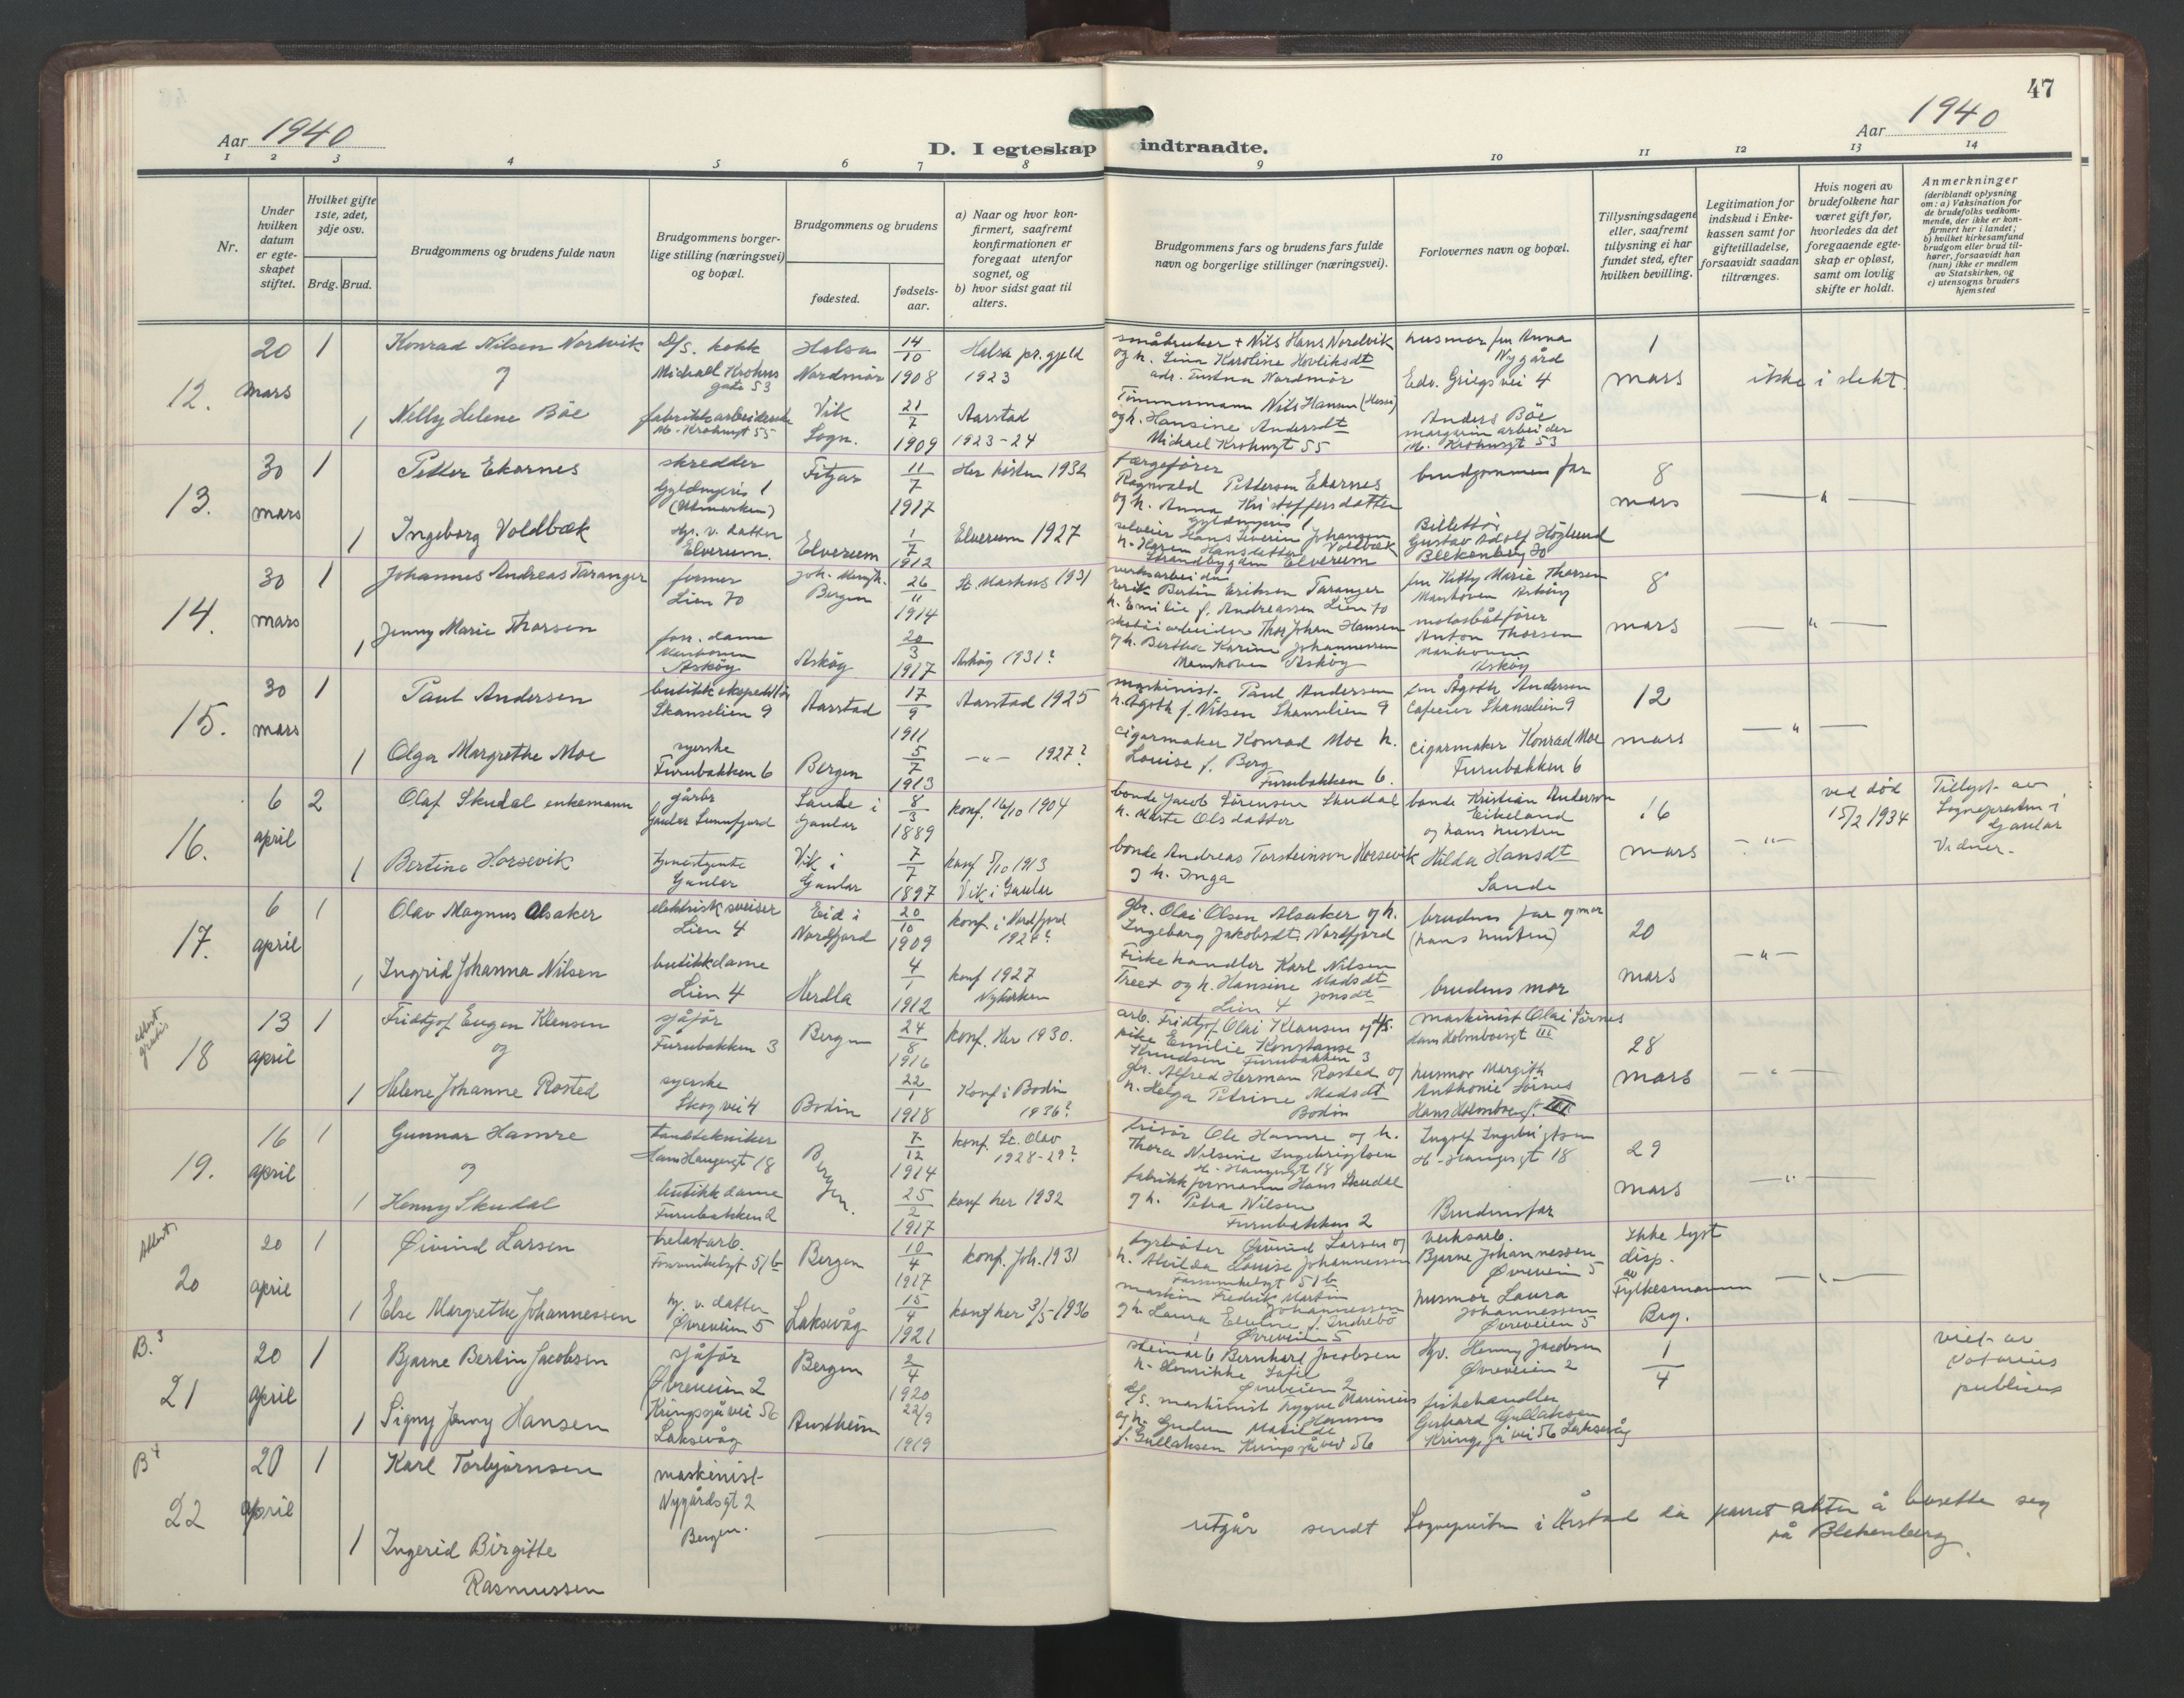 47
Aar 1940
Aar 1940
D. I egteskap indtraadte.
1 2 3 4 5 6 7 8 9 10 11 12 13 14
Nr.
Under hvilken datum er egteskapet stiftet.
Hvilket gifte 1ste, 2det, 3dje osv.
Brdg. Brud.
Brudgommens og brudens fulde navn
Brudgommens borgerlige stilling (næringsvei) og bopæl.
Brudgommens og brudens
fødested.
fødselsaar.
a) Naar og hvor konfirmert, saafremt konfirmationen er foregaat utenfor sognet, og
b) hvor sidst gaat til alters.
Brudgommens fars og brudens fars fulde navn og borgerlige stillinger (næringsvei).
Forlovernes navn og bopæl.
Tillysningsdagene eller, saafremt tillysning ei har fundet sted, efter hvilken bevilling.
Legitimation for indskud i Enkekassen samt for giftetilladelse, forsaavidt saadan tiltrænges.
Hvis nogen av brudefolkene har været gift før, hvorledes da det foregaaende egteskap er opløst, samt om lovlig skifte er holdt.
Anmerkninger
(deriblandt oplysning om: a) Vaksination for de brudefolks vedkommende, der ikke er konfirmert her i landet; b) hvilket kirkesamfund brudgom eller brud tilhører, forsaavidt han (hun) ikke er medlem av Statskirken, og c) utensogns bruders hjemsted
12. 20 mars 1
Konrad Nilsen Nordvik
og
D/s. kokk
Michael Krohns gate 53
Halsa Nordmör
14/10 1908
Halsa pr. gjeld 1923
småbruker + Nils Hans Nordvik
og h. Lina Karoline
adr. Tustna Nordmör
husmor fru Anna Nygård
Edv. Griegs vei 4
1 mars
ikke i slekt.
1 Nelly Helene Böe
fabrikkarbeiderske
M. Krohnsgt 55
Vik Sogn.
21/7 1909
Aarstad 1923-24
Tömmermann Nils Hansen
og h. Hansine Andersdt
Michael Krohnsgt 55
Anders Böe
margarin arbeider
M. Krohnsgt 53
13. 30 mars 1
Petter Ekornes
skredder
Gyldenpris 1
Fitjar
11/7 1917
Her hösten 1932
færgeförer
Ragnvald Pettersen Ekornes
og h. Anna Kristoffersdatter
Gyldenpris 1
brudgommens far
8 mars
— " —
1 Ingeborg Voldbæk
hj. v. datter
Elverum.
Elverum
1/7 1912
Elverum 1927
selveier Hans Severin Johansen Voldbæk
h. Karen Hansdatter
Strandbygden Elverum
Billettör
Gustav Adolf Höglund
Blekenberg 70
14. 30 mars 1
Johannes Andreas Taranger
former
Lien 70
Joh. Menigh.
Bergen
26/11 1914
St. Markus 1931
verksarbeider
Erik Bertin Eriksen Taranger
h. Emilie f. Andreassen Lien 70
fru Kitty Marie Thorsen
Askøy
8 mars
— " —
1 Jenny Marie Thorsen
forr. dame
Askøy
Askøy
20/3 1917
Askøy 1931?
Thor Johan Hansen
og h. Karine Johannessen
Askøy
motorbåtförer
Anton Thorsen
Askøy
15. 30 mars 1
Paul Andersen
butikkekspeditör
Skanselien 9
Aarstad
17/9 1911
Aarstad 1925
maskinist. Paul Andersen
h. Agoth f. Nilsen Skanselien 9
fru Ågoth Andersen
Cafeeier Skanselien 9
12 mars
— " —
1 Olga Margrethe Moe
syerske
Furubakken 6
Bergen
5/7 1913
— " — 1927?
cigarmaker Konrad Moe h.
Louise f. Berg
Furubakken 6.
cigarmaker Konrad Moe
Furubakken 6
16. 6 april 2
Olaf Skudal enkemann
gårbr
Gaular Sunnfjord
Sande i Gaular
8/3 1889
konf. 16/10 1904
bonde Jacob Sörensen Skudal
h. Marte Olsdatter
bonde Kristian Anderson Eikeland
og hans hustru
16 mars
— " —
ved död
15/2 1934
Tillyst av
Sognepresten i
Gaular
Vidner.
1 Bertine Horsevik
tjenestjente
Gaular
Vik i Gaular
7/7 1897
konf 5/10 1913
Vik i Gaular
bonde Andreas Torsteinson Horsevik
og h. Inga
Hilda Hansdt
Sande
17. 6 april 1
Olav Magnus Alsaker
elektrisk sveiser
Lien 4
Eid i Nordfjord
20/10 1909
konf. i Nordfjord
1924?
gbr. Olai Olsen Alsaker og h.
Ingeborg Jakobsdt. Nordfjord
brudens far og mor
(hans hustru)
20 mars
— " —
1 Ingrid Johanna Nilsen
butikkdame
Lien 4
Herdla
4/1 1912
konf 1927
Nykirken
Fiskehandler Karl Nilsen
Treet og h. Hansine Madsdt
Jonsdt
Lien 4
brudens mor
attest gratis
18 13 april 1
Fridtjof Eugen Klausen
og
sjåför
Furubakken 3
Bergen
24/8 1916
konf. Her 1930.
arb. Fridtjof Olai Klausen og d/s.
pike Emilie Konstanse
Knudsen Furubakken 3
maskinist Olai Sörnes
Hans Holmboesgt III
28 mars
— " —
1 Helene Johanne Rosted
syerske
Skogvei 4
Bodin
22/1 1918
Konf i Bodin
1936?
gbr. Alfred Herman Rosted og
h. Helga Petrine Madsdt
Bodin
husmor Margith
Anthonie Sörnes
Hans Holmboesgt. III
19. 16 april 1
Gunnar Hamre
og
tandtekniker
Hans Haugesgt 18
Bergen.
7/12 1914
konf. St. Olav
1928-29?
frisör Ole Hamre og h.
Thora Nilsine Ingebrigtsen
H. Haugesgt 18
Ingolf Ingebrigtsen
H. Haugesgt 18
29 mars
— " —
1 Henny Skudal
butikkdame
Furubakken 2
25/2 1917
konf her 1932
fabrikkformann Hans Skudal
og h. Petra Nilsen
Furubakken 2
Brudens far
Attest
20 20 april 1
Øivind Larsen
51b
Bergen
10/4 1917
konf. Joh. 1931
fyrböter Øivind Larsen og
h. Alvilda Louise Johannessen
51b
verksarb.
Bjarne Johannessen
Øvreveien 5
Ikke lyst
disp.
av
Fylkesmannen
Brg.
— " —
1 Else Margrethe Johannessen
hj. v. datter
Øvreveien 5
Laksevåg
15/4 1921
konf her 3/5-1936
maskin Fredrik Martin
Johannessen
og h. Laura Eveline f. Indrebö
Øvreveien 5
husmor Laura
Johannessen
Øvreveien 5
B.3
21 20 april 1
Bjarne Bertin Jacobsen
sjåför
Øvreveien 2
Bergen
2/4 1920
steinarb Bernhard Jacobsen
h. Henrikke Sofie
Øvreveien 2
Hj. Henny Jacobsen
Øvreveien 2
1/4
viet av
notarius
publicus
1 Signy Jenny Hansen
Kringsjåvei 56
Laksevåg
Austheim
22/9 1919
d/s. maskinist Trygve Marinius
og h. Gudrun Matilde Hansen
f. Gullaksen Kringsjåvei 56
fiskehandler
Gerhard Gullaksen
Kringsjåvei 56 Laksevåg
B4
22 20 april 1
Karl Torbjørnsen
maskinist
Nygårdsgt 2
Bergen.
1 Ingerid Birgitte
Rasmussen
utgår sendt Sogneprestn i Årstad da parret akter å bosette seg
på Blekenberg.